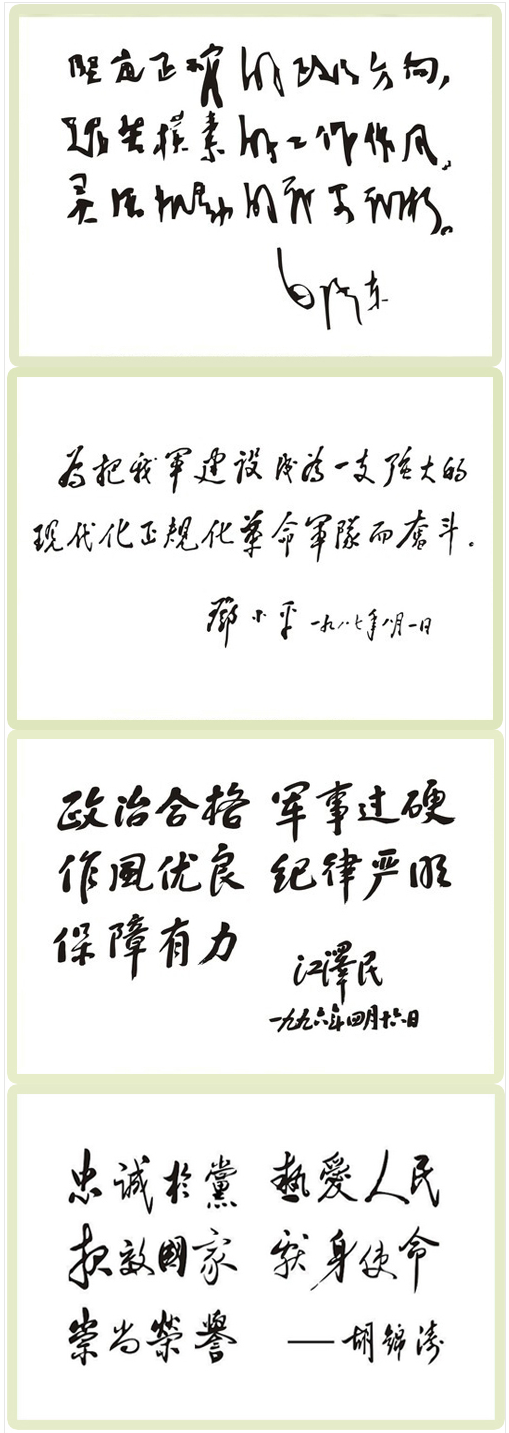 坚定正确的政治方向，
艰苦朴素的工作作风，
灵活机动的战略战术。
毛泽东
為把我軍建设成為一支强大的
现代化正規化革命軍隊而奮斗。
鄧小平 一九八七年八月一日
政治合格 军事过硬
作風优良 纪律严明
保障有力
江澤民
一九九六年四月十六日
忠誠於黨 熱愛人民
报效國家 献身使命
崇尚榮譽 ——胡錦濤